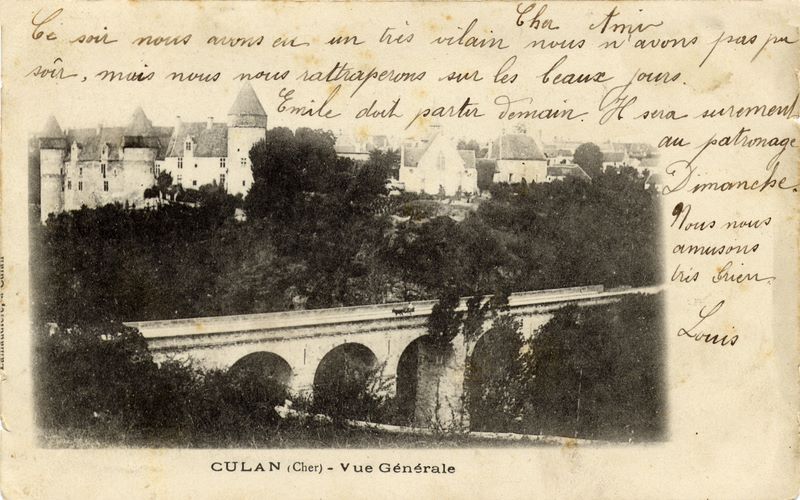 Cher Ami
Ce soir nous avons eu un très vilain nous n'avons pas pu
sôir, mais nous nous rattraperons sur les beaux jours.
Emile doit partir demain. Il sera surement
au patronage
Dimanche.
Nous nous
amusons
très bien.
Louis
CULAN (Cher) - Vue Générale